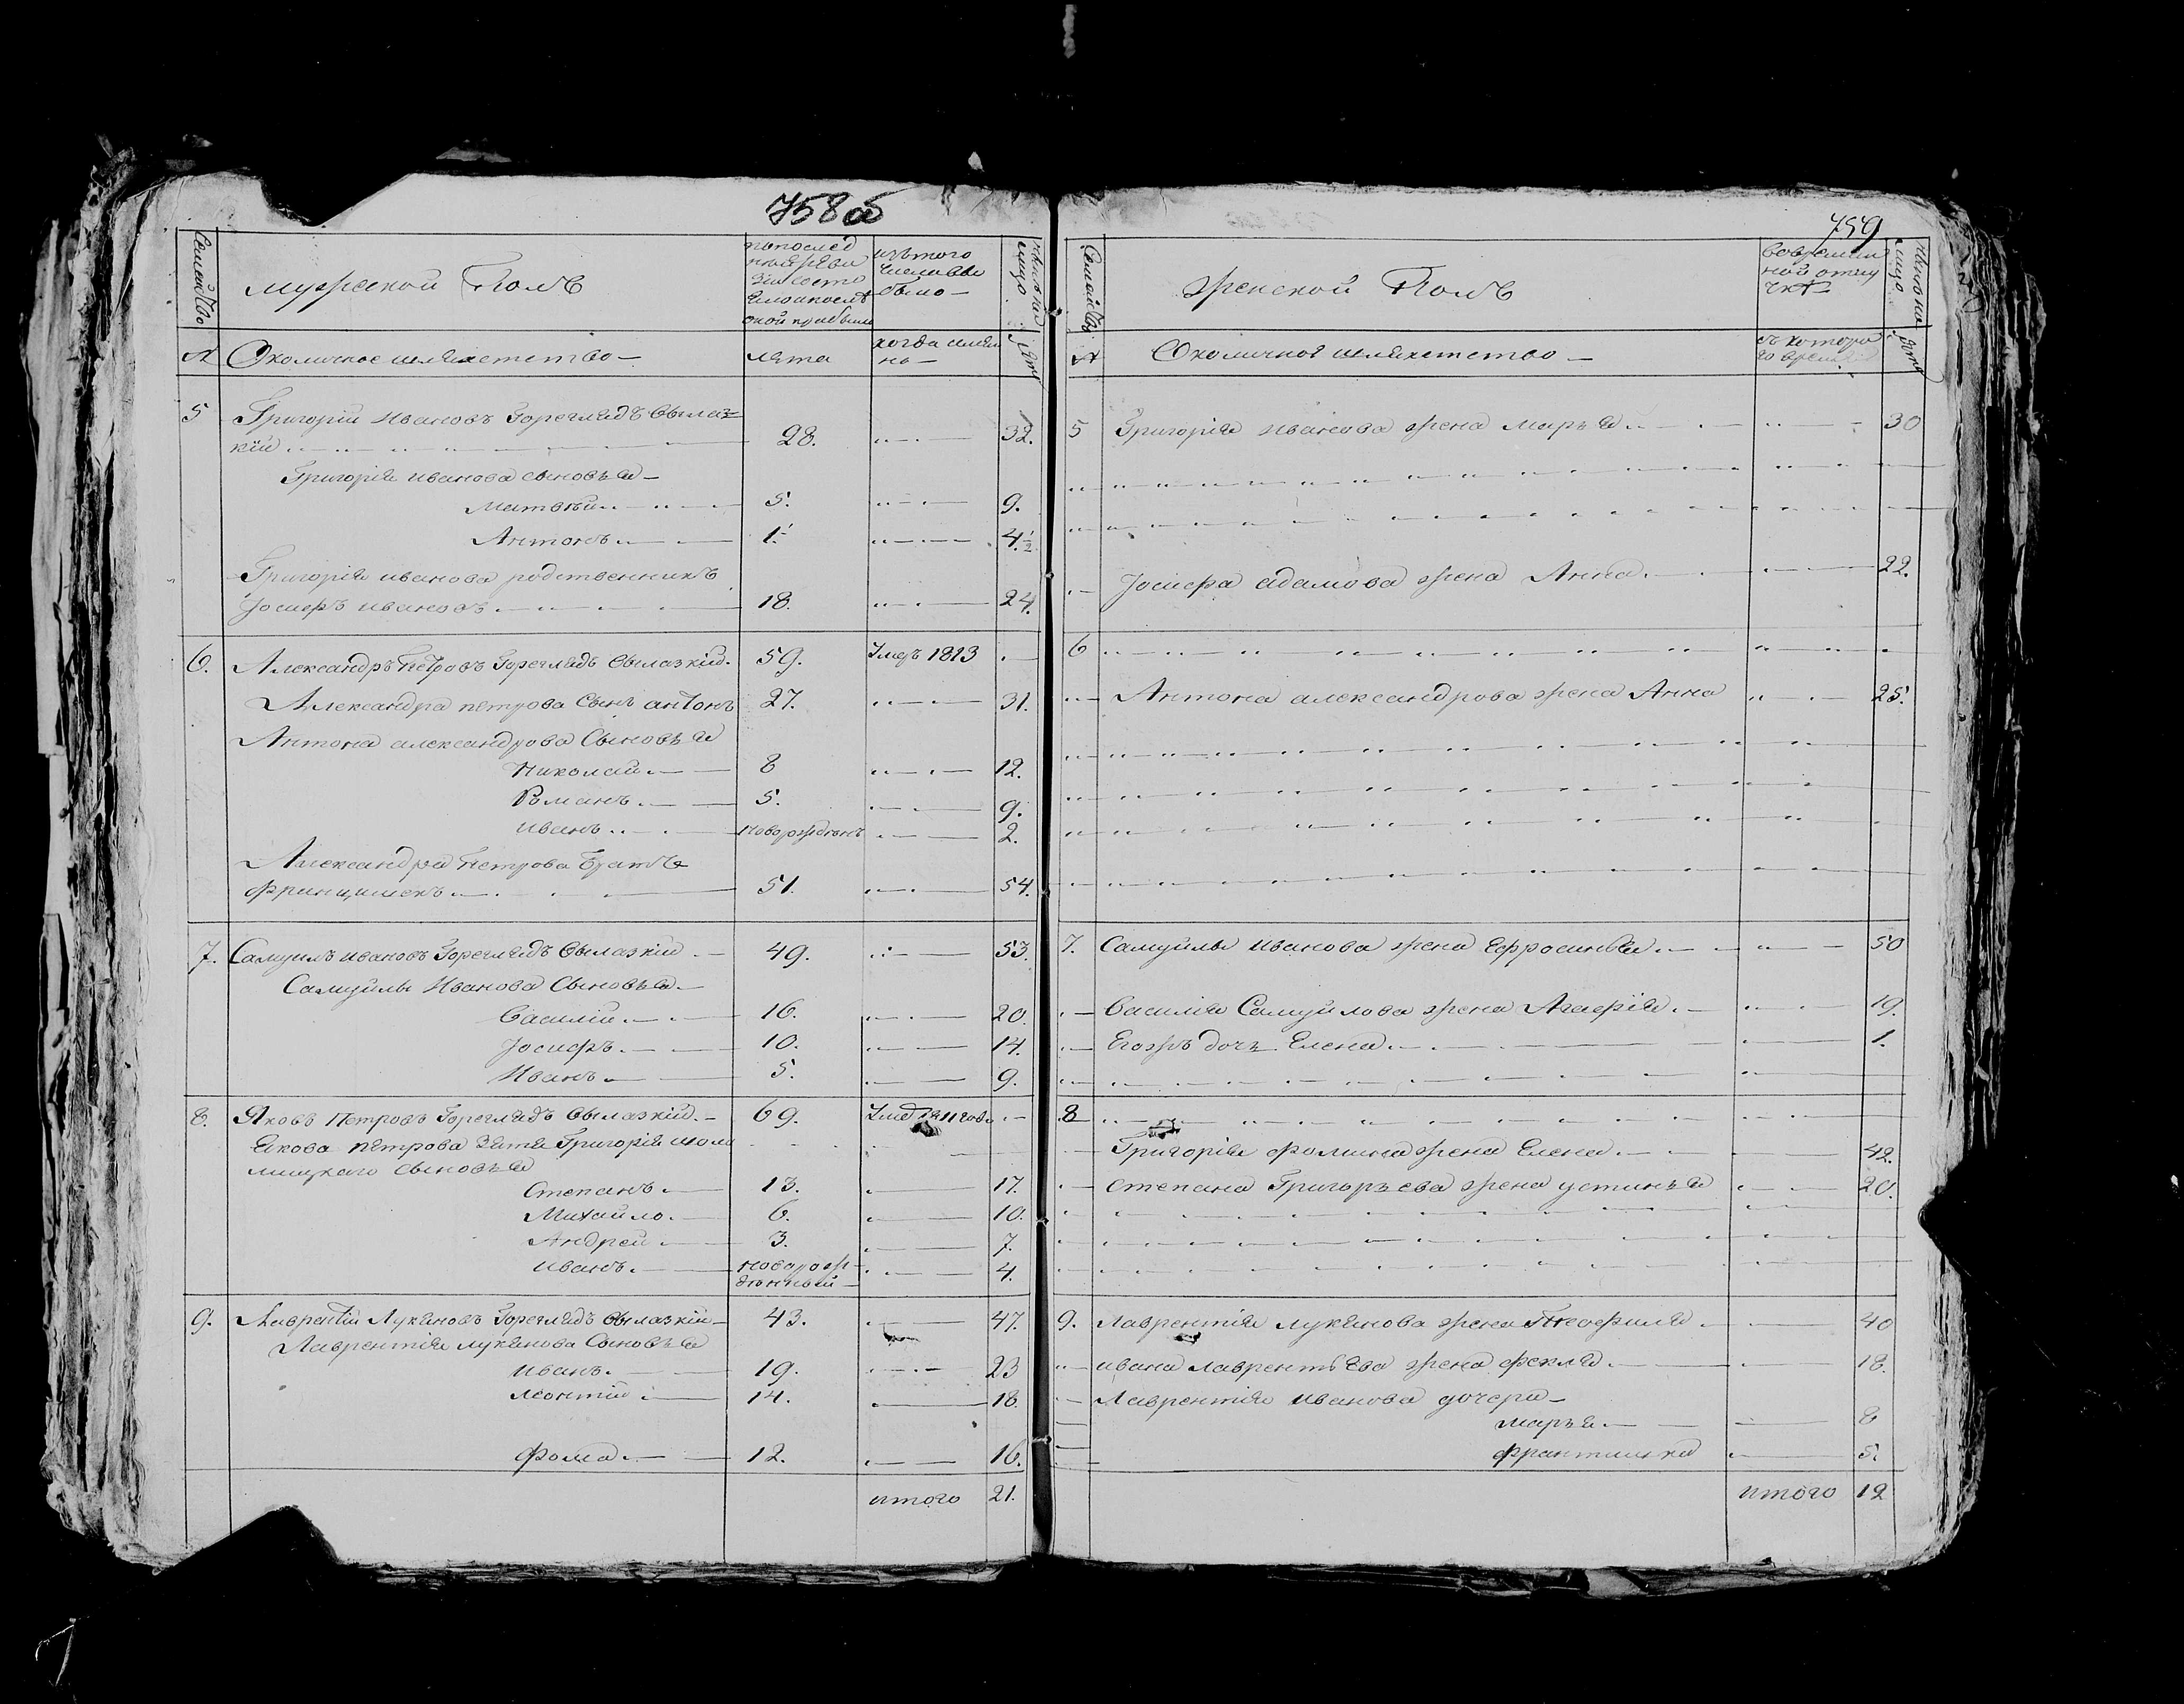 758 об
Семейство
мужеской Полъ
по послед
ней реви
зіи состо
яло и послѣ
оной прибыло
изъ того
числа вы
было —
ныне на
лицо
№ Околичное шляхетство —
лета
когда имян
но —
лета
5 Григорій Ивановъ Гореглядъ Вылаз
кій 28. 32.
Григорія иванова сыновья —
Матвѣй 5. 9.
Антонъ 1. 4 1/2
Григорія иванова родственникъ
Іосифъ ивановъ 18. 24.
6. Александръ Петровъ Гореглядъ Вылазкій. 59. Умеръ 1813
Александра петрова Сынъ антонъ 27. 31.
Антона александрова Сыновья
Николай 8 12.
Романъ 5. 9.
иванъ новорожденъ 2.
Александра Петрова Братъ
францишекъ 51. 54.
7. Самуилъ ивановъ Гореглядъ Вылазкій 49. 53.
Самуйлы Иванова Сыновья
Василій 16. 20.
Іосифъ 10. 14.
Иванъ 5. 9.
8. Яковъ Петровъ Гореглядъ Вылазкій 69. Умер 1811 года
Якова петрова Зятя Григорія
лицкаго сыновья
Степанъ 13. 17.
Михайло 6. 10.
Андрей 3. 7.
иванъ новорож
денный 4.
9. Лаврентій Лукяновъ Гореглядъ Вылазкій 43. 47.
Лаврентія лукянова Сыновья
иванъ 19. 23
леонтій 14. 18.
фома 12. 16.
итого 21.
759
Семейство
женской Полъ
во времян
ной отлу
чке
ныне на
лицо
№ Околичное шляхетство —
съ которо
го время
лета
5 Григорія иванова жена марья 30
Іосифа адамова жена Анна 22.
6
Антона александрова жена Анна 25.
7. Самуйлы иванова жена Ефросинья 50
Василія Самуйлова жена Агафія 19.
Егожъ дочь Елена 1.
8
Григорія фомина жена Елена 42.
степана Григорьева жена устинья 20.
9. лаврентія лукянова жена Теофиля 40
ивана лаврентьева жена фекля 18.
Лаврентія иванова дочери —
марья 8
франтишка 5.
итого 12